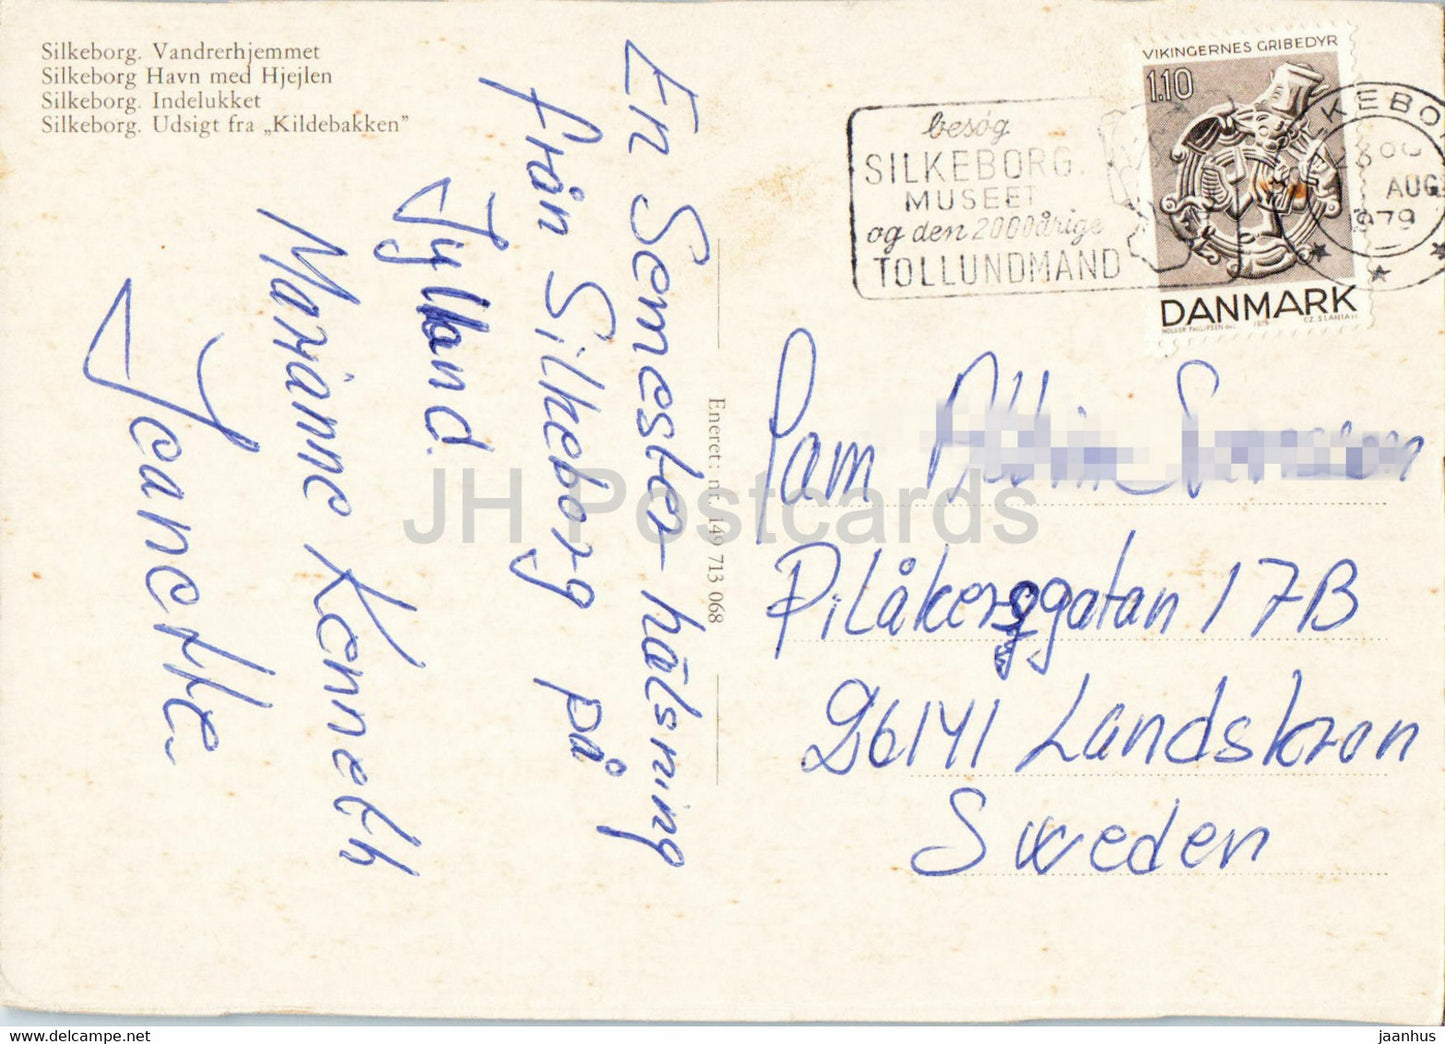 Silkeborg. Vandrerhjemmet
Silkeborg Havn med Hjejlen
Silkeborg. Indelukket
Silkeborg. Udsigt fra „Kildebakken”
En Semester-hälsning
från Silkeborg på
Jylland.
Marianne Kenneth
Jeanette.
Eneret: nr. 149 713 068
besøg
SILKEBORG
MUSEET
og den 2000årige
TOLLUNDMAND
VIKINGERNES GRIBEDYR
1.10
DANMARK
HOLGER PHILIPSEN del. 1979 CZ. SLANIA sc.
AUG
1979
Fam
Pilåkersgatan 17B
26141 Landskron
Sweden
JH Postcards
www.hippostcard.com/store/jh-postcards
jaanhus